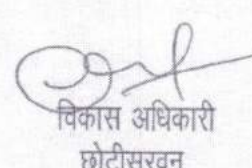 विकास अधिकारी
छोटीसरवन